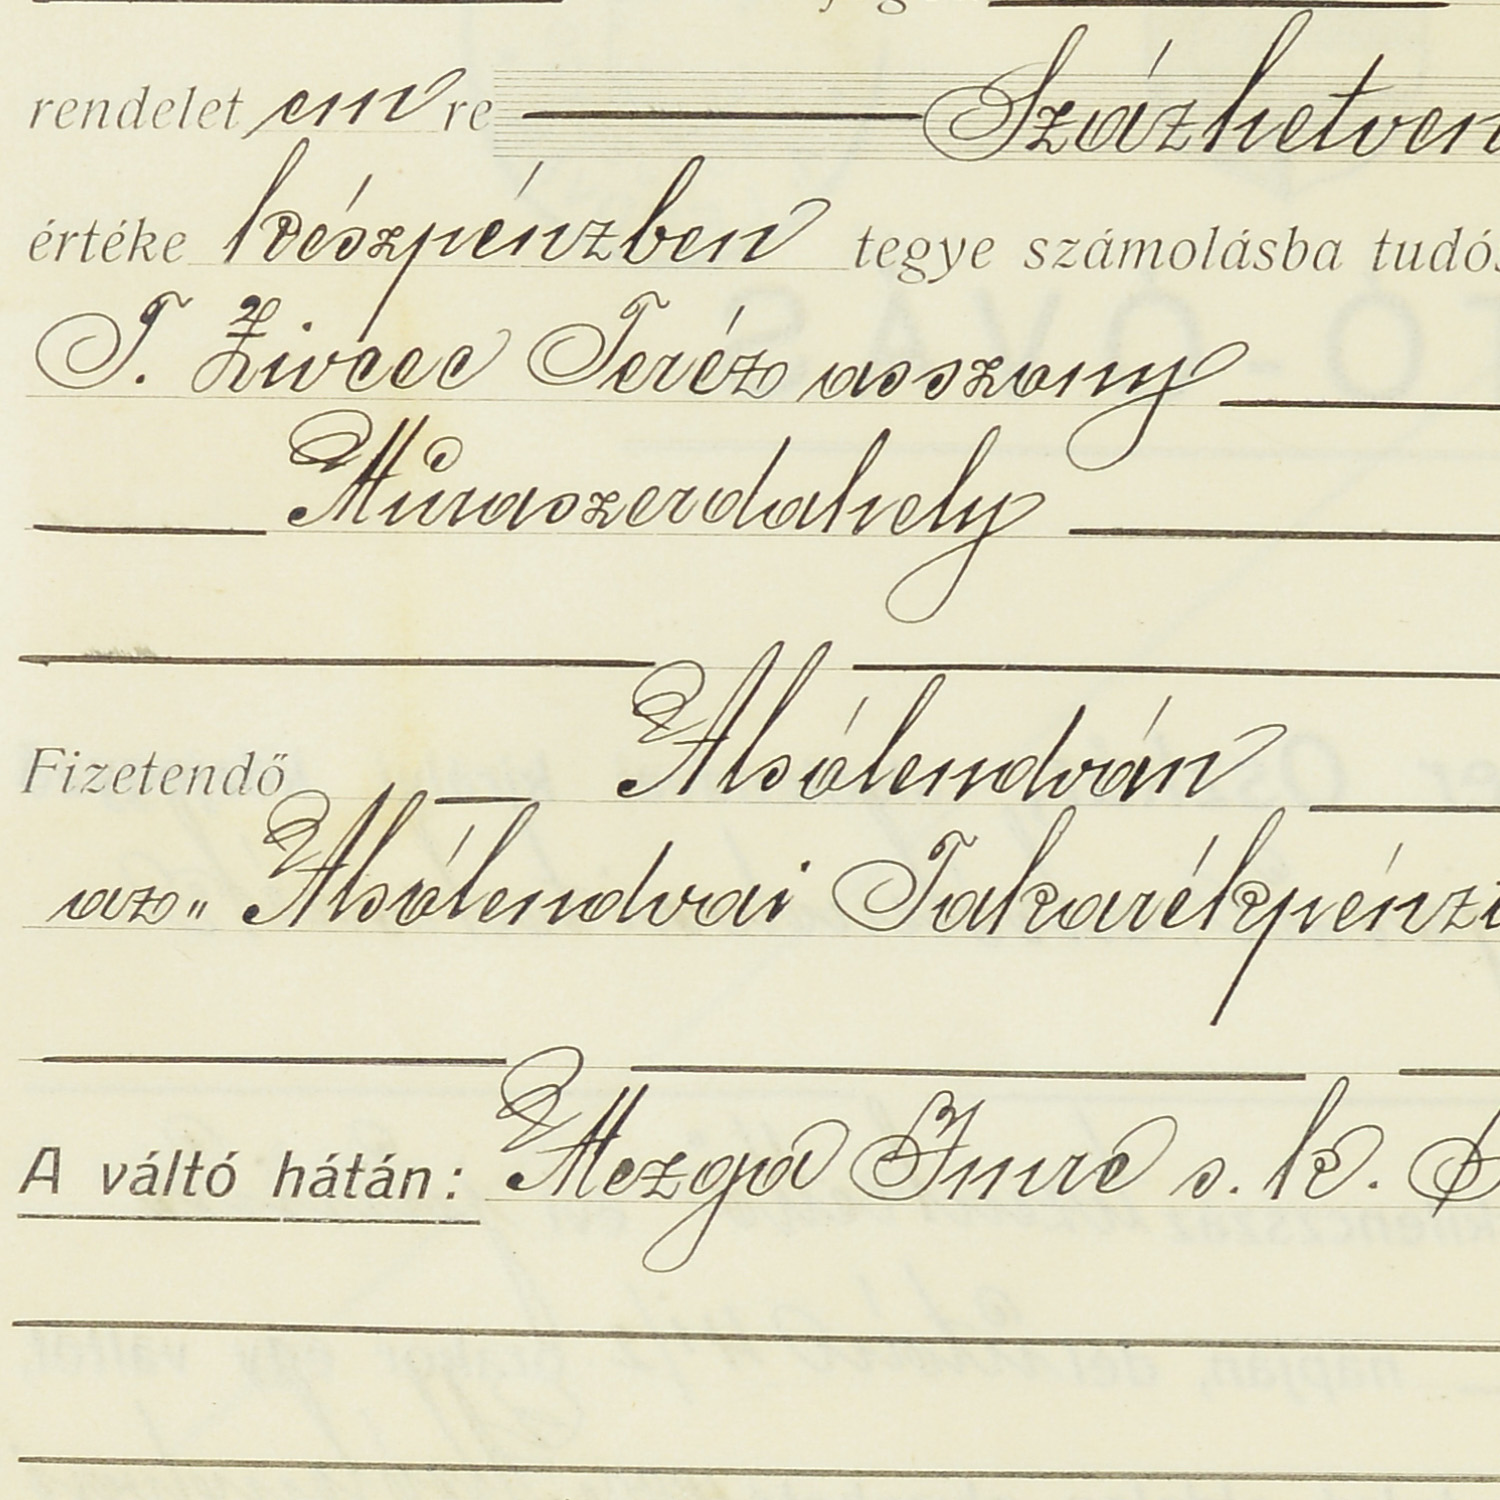 rendelet em re Százhetven
értéke készpénzben tegye számolásba tudós
T. Zivecc Teréz asszony
Muraszerdahely
Fizetendő Alsólendván
az „Alsólendvai Takarékpénzt
A váltó hátán: Mezga Imre s. k.